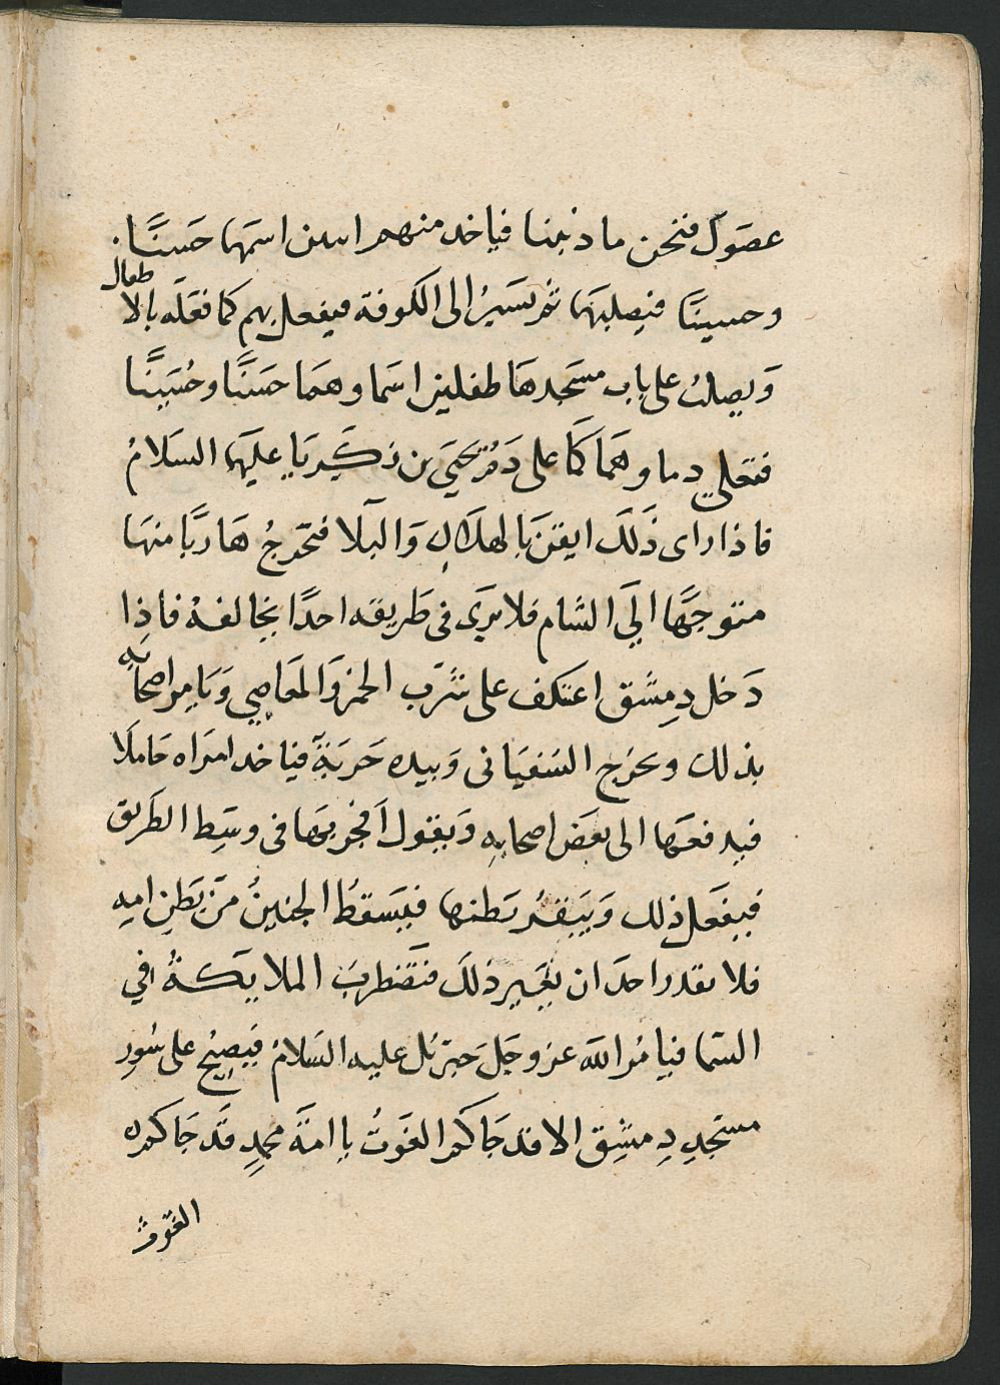 عصَوك فنحن ما ذنبنا فياخد منهم اسن اسمهما حَسَنًا
وحسينًا فيصلبهَما ثم يسَيرُ الى الكوفة فيفعل بهم كما فعَلَه بالاطفال
وَيصلبُ على باب مسَجدهَا طفلين اسَماوهمَا حسَنًا وحُسَينًا
فتغلي دماوهمَا كمَا غلى دَمُ يحيَى بن زكَريَا عليهمَا السَلامُ
فاذا راى ذَلكَ ايقنَ بالهلاكِ وَالبَلا فتخرجُ هَاربًا منهَا
متوجهًا الَي الشام فلا يرَى في طَريقه احدًا يخالفهُ فاذِا
دَخل دِمِشَق اعتكف على شَرب الخمر وَالمعَاصِي وَيَامر اصحَابَه
بذلك ويخرَج السَفيَانى وَبيده حَربَةٌ فياخد امرَاه حَاملَا
فيدفعهَا الى بعَض اصحابِه وَيقول اَفجر بهَا في وسَط الطَريق
فيفعَل ذلك وَيَبقرُ بَطنها فيَسَقطُ الجنينُ مِنَ بَطنِ امِهِ
فلا يقدر احدَ ان يغَير ذلكَ فتَضَطربُ الملايكَةُ في
السَما فيامُر اللّه عز وجَل جَبريل عليه السَلامُ فيَصِيحُ على سُورِ
مسَجدِ دِمشِق الا قد جَاكم الغَوثُ يا امةَ محمدٍ قَد جَاكم
الغَوثُ